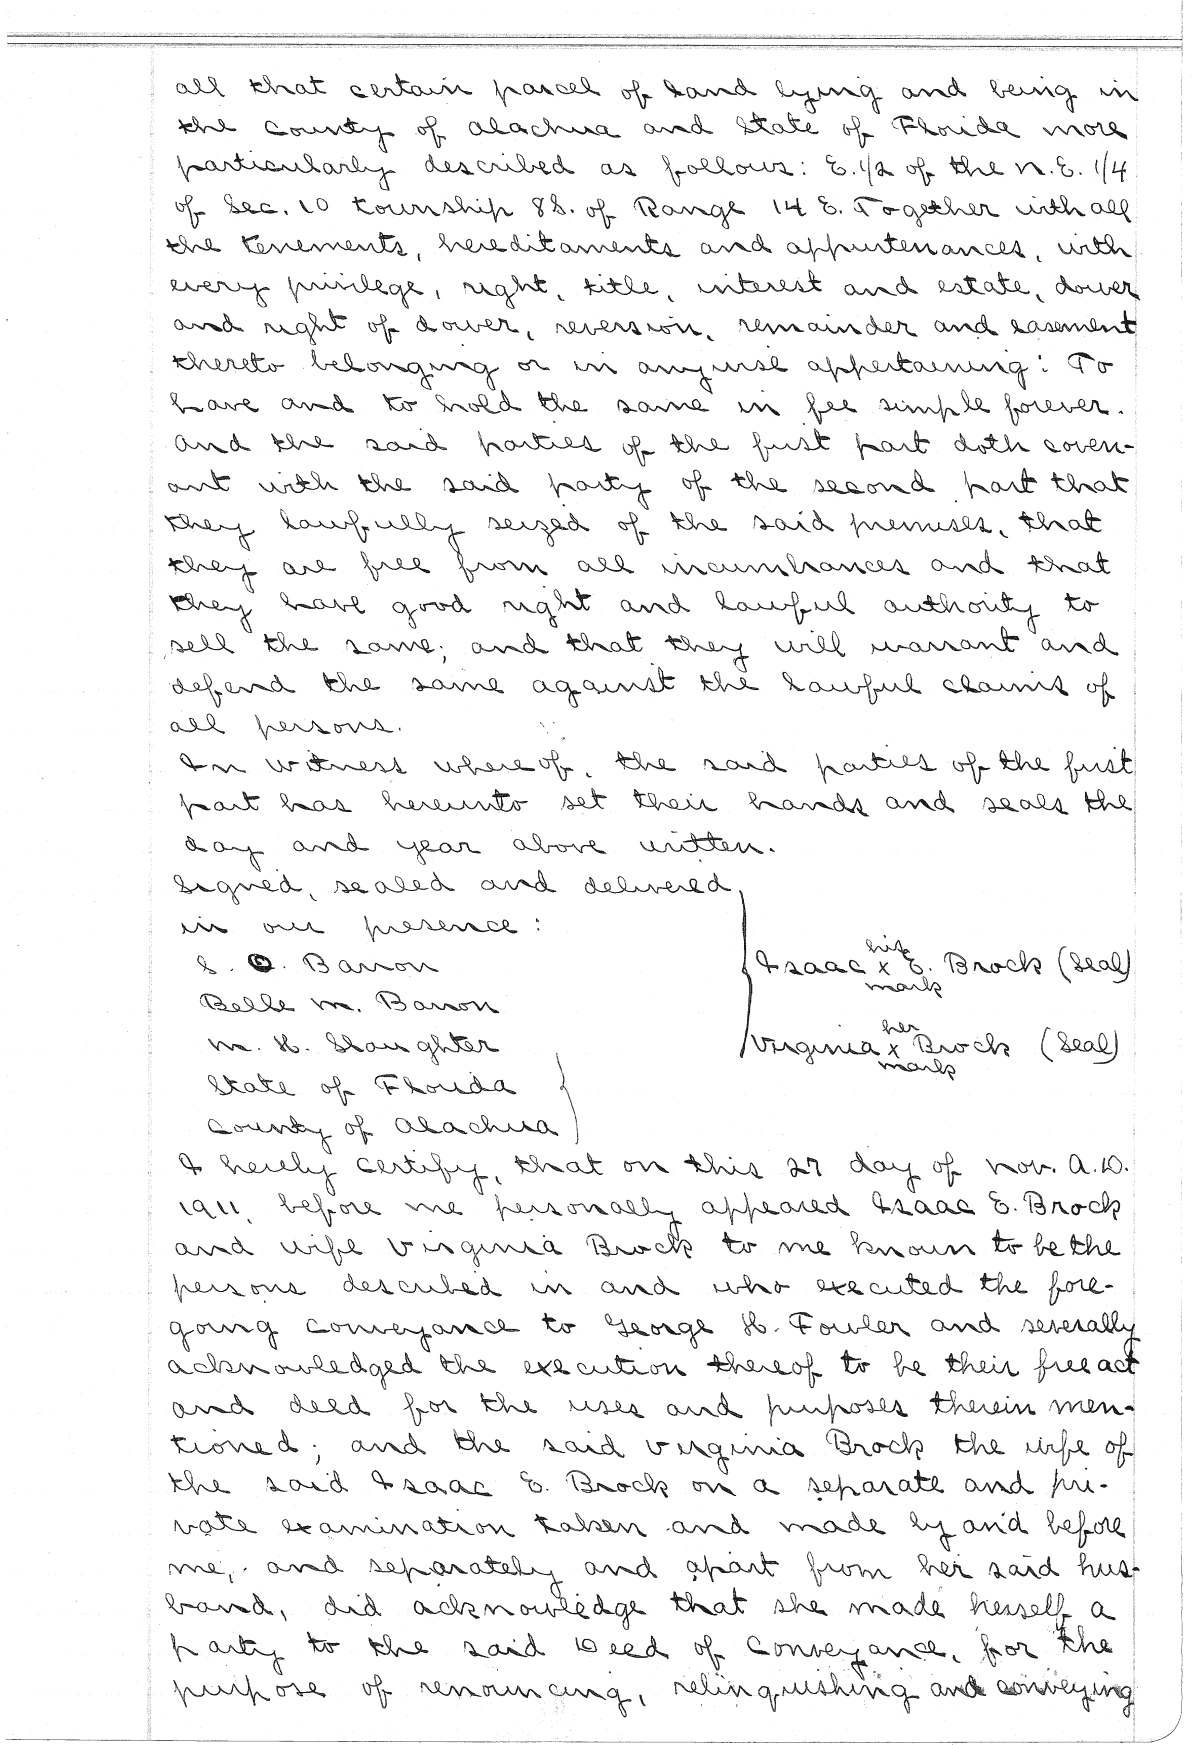 all that certain parcel of land lying and being in
the County of Alachua and State of Florida more
particularly described as follows: E. 1/2 of the N.E. 1/4
of Sec. 10 township 8S. of Range 14 E. Together with all
the tenements, hereditaments and appurtenances, with
every privilege, right, title, interest and estate, dower
and right of dower, reversion, remainder and easement
thereto belonging or in anywise appertaining: To
have and to hold the same in fee simple forever.
And the said parties of the first part doth coven-
ant with the said party of the second part that
they lawfully seized of the said premises, that
they are free from all incumbrances and that
they have good right and lawful authority to
sell the same; and that they will warrant and
defend the same against the lawful claims of
all persons.
In witness whereof, the said parties of the first
part has hereunto set their hands and seals the
day and year above written.
Signed, sealed and delivered
in our presence:
S. O. Barron
Isaac his x mark E. Brock (Seal)
Belle M. Barron
M. H. Slaughter
Virginia her x mark Brock (Seal)
State of Florida
County of Alachua
I hereby certify, that on this 27 day of Nov. A.D.
1911, before me personally appeared Isaac E. Brock
and wife Virginia Brock to me known to be the
persons described in and who executed the fore-
going conveyance to George H. Fowler and severally
acknowledged the execution thereof to be their free act
and deed for the uses and purposes therein men-
tioned; and the said Virginia Brock the wife of
the said Isaac E. Brock on a separate and pri-
vate examination taken and made by and before
me, and separately and apart from her said hus-
band, did acknowledge that she made herself a
party to the said Deed of Conveyance, for the
purpose of renouncing, relinquishing and conveying